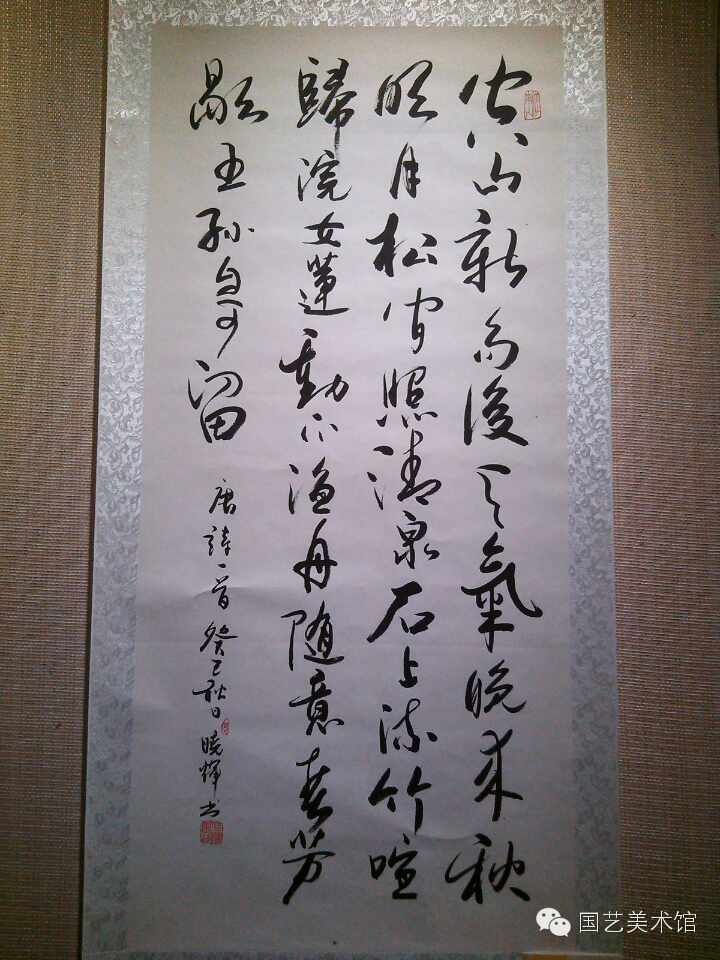 空山新雨後天氣晚來秋
明月松間照清泉石上流竹喧
歸浣女蓮動下漁舟随意春芳
歇王孫自可留
唐詩一首癸巳秋日曉輝书
国艺美术馆